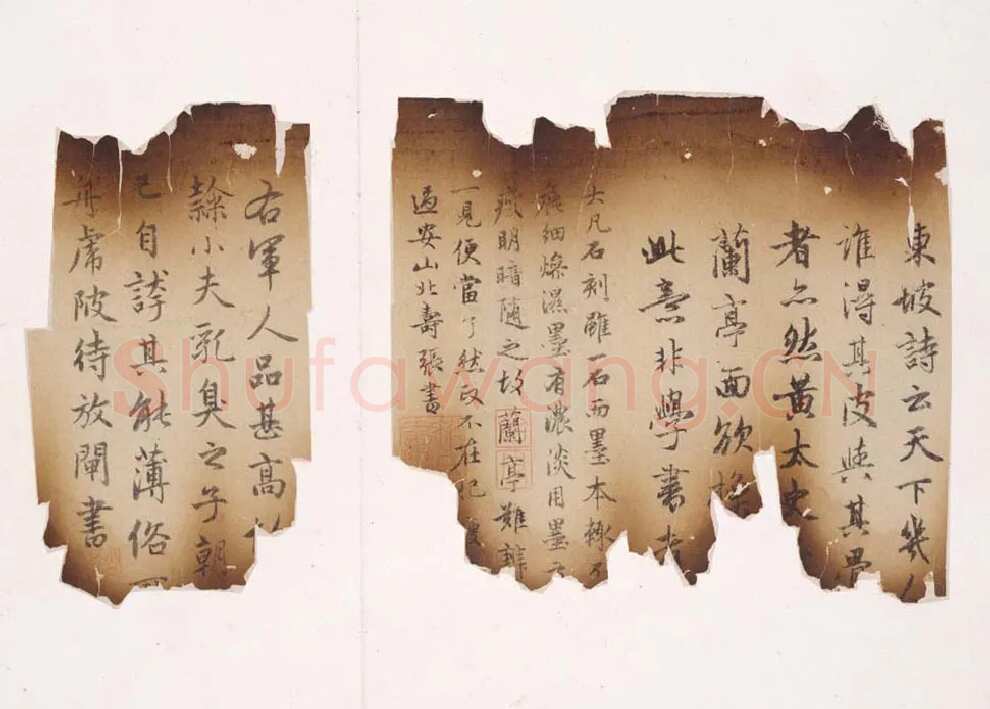 東坡詩云天下幾人
誰得其皮與其骨
者亦然黃太史
蘭亭面欲換
此意非學書者
大凡石刻雖一石而墨本輒不
麤細燥濕墨有濃淡用墨
瘦明暗隨之故蘭亭難辨
一見便當了然 不在肥瘦
過安山北壽張書
右軍人品甚高
隸小夫乳臭之子朝
已自誇其能薄俗可
舟虎陂待放閘書
Shufawang.CN